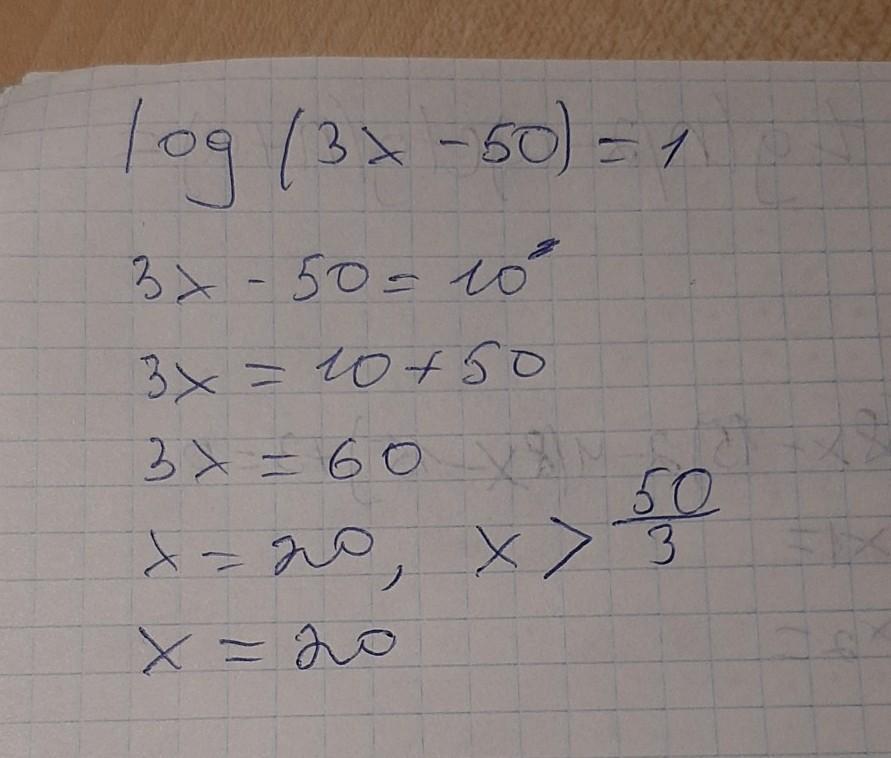 log (3x - 50) = 1
3x - 50 = 10
3x = 10 + 50
3x = 60
x = 20, x > 50/3
x = 20